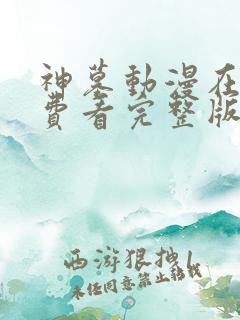 神墓動漫在
費看完整版
西游狠拽1
未经同意禁止转载